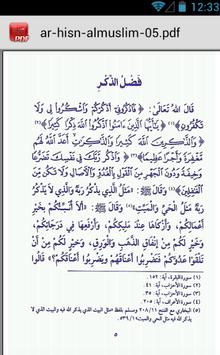 12:33
PDF
ar-hisn-almuslim-05.pdf
فَضْلُ الذِّكْرِ
قَالَ اللهُ تَعَالَى: ﴿فَاذْكُرُونِي أَذْكُرْكُمْ وَاشْكُرُوا لِي وَلَا
تَكْفُرُونِ﴾(١) ﴿يَا أَيُّهَا الَّذِينَ آمَنُوا اذْكُرُوا اللهَ ذِكْرًا كَثِيرًا﴾(٢)
﴿وَالذَّاكِرِينَ اللهَ كَثِيرًا وَالذَّاكِرَاتِ أَعَدَّ اللهُ لَهُمْ
مَغْفِرَةً وَأَجْرًا عَظِيمًا﴾(٣) ﴿وَاذْكُرْ رَبَّكَ فِي نَفْسِكَ تَضَرُّعًا
وَخِيفَةً وَدُونَ الْجَهْرِ مِنَ الْقَوْلِ بِالْغُدُوِّ وَالْآصَالِ وَلَا تَكُنْ مِنَ
الْغَافِلِينَ﴾(٤) وَقَالَ ﷺ: «مَثَلُ الَّذِي يَذْكُرُ رَبَّهُ وَالَّذِي لَا يَذْكُرُ
رَبَّهُ مَثَلُ الْحَيِّ وَالْمَيِّتِ»(٥) وَقَالَ ﷺ: «أَلَا أُنَبِّئُكُمْ بِخَيْرِ
أَعْمَالِكُمْ، وَأَزْكَاهَا عِنْدَ مَلِيكِكُمْ، وَأَرْفَعِهَا فِي دَرَجَاتِكُمْ،
وَخَيْرٍ لَكُمْ مِنْ إِنْفَاقِ الذَّهَبِ وَالْوَرِقِ، وَخَيْرٍ لَكُمْ مِنْ أَنْ
تَلْقَوْا عَدُوَّكُمْ فَتَضْرِبُوا أَعْنَاقَهُمْ وَيَضْرِبُوا أَعْنَاقَكُمْ؟»
(١) سورة البقرة، آية: ١٥٢.
(٢) سورة الأحزاب، آية: ٤١.
(٣) سورة الأحزاب، آية: ٣٥.
(٤) سورة الأعراف، آية: ٢٠٥.
(٥) البخاري مع الفتح ٢٠٨/١١ ومسلم بلفظ «مثل البيت الذي يذكر الله فيه والبيت الذي لا
يذكر الله فيه مثل الحي والميت» ٥٣٩/١.
٥